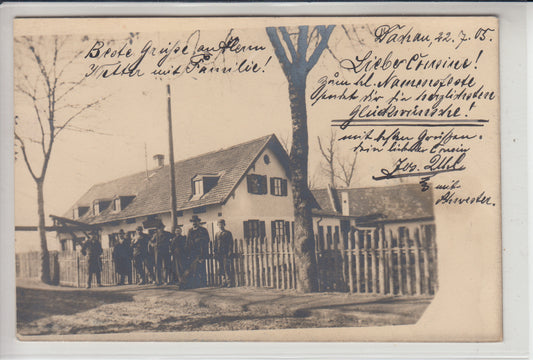 Beste Grüße an Herrn
Vetter mit Familie!
Dachau, 22. 7. 05.
Lieber Cousin!
Zum hl. Namensfeste
sendet dir die herzlichsten
Glückwünsche!
mit besten Grüssen
dein liebster Cousin
Jos. Uhl.
mit
Schwester.